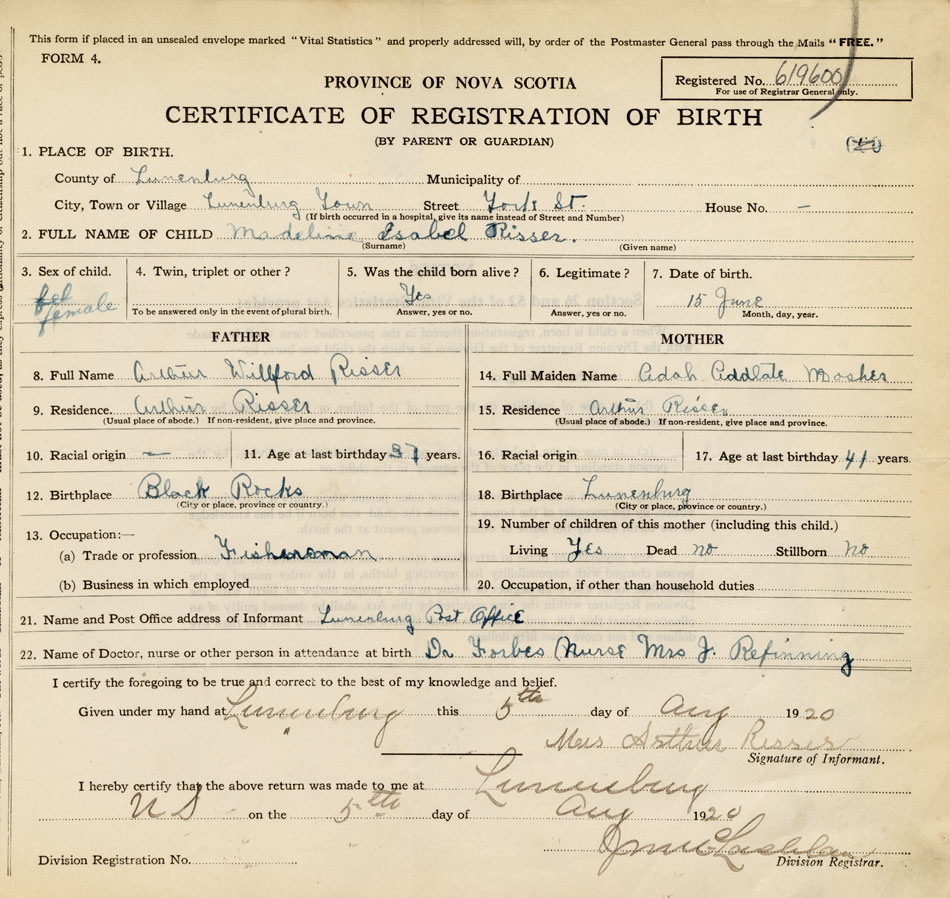 This form if placed in an unsealed envelope marked "Vital Statistics" and properly addressed will, by order of the Postmaster General pass through the Mails "FREE."
FORM 4.
Registered No. 619600
For use of Registrar General only.
PROVINCE OF NOVA SCOTIA
CERTIFICATE OF REGISTRATION OF BIRTH
(BY PARENT OR GUARDIAN)
1. PLACE OF BIRTH.
County of Lunenburg Municipality of
City, Town or Village Lunenburg Town Street York St. House No. —
(If birth occurred in a hospital, give its name instead of Street and Number)
2. FULL NAME OF CHILD Madeline Isabel Risser.
(Surname) (Given name)
3. Sex of child. 4. Twin, triplet or other? 5. Was the child born alive? 6. Legitimate? 7. Date of birth.
female Yes 15 June
To be answered only in the event of plural birth. Answer, yes or no. Answer, yes or no. Month, day, year.
FATHER MOTHER
8. Full Name Arthur Willford Risser 14. Full Maiden Name Adah Mosher
9. Residence. Arthur Risser 15. Residence Arthur Risser
(Usual place of abode.) If non-resident, give place and province. (Usual place of abode.) If non-resident, give place and province.
10. Racial origin — 11. Age at last birthday 37 years. 16. Racial origin 17. Age at last birthday 41 years.
12. Birthplace Black Rocks 18. Birthplace Lunenburg
(City or place, province or country.) (City or place, province or country.)
13. Occupation:— 19. Number of children of this mother (including this child.)
(a) Trade or profession Fisherman Living Yes Dead no Stillborn No
(b) Business in which employed 20. Occupation, if other than household duties
21. Name and Post Office address of Informant Lunenburg Post Office
22. Name of Doctor, nurse or other person in attendance at birth Dr Forbes Nurse Mrs J.
I certify the foregoing to be true and correct to the best of my knowledge and belief.
Given under my hand at Lunenburg this 5th day of Aug 1920
Mrs Arthur Risser
Signature of Informant.
I hereby certify that the above return was made to me at Lunenburg
NS on the 5th day of Aug 1920
Division Registration No. Division Registrar.